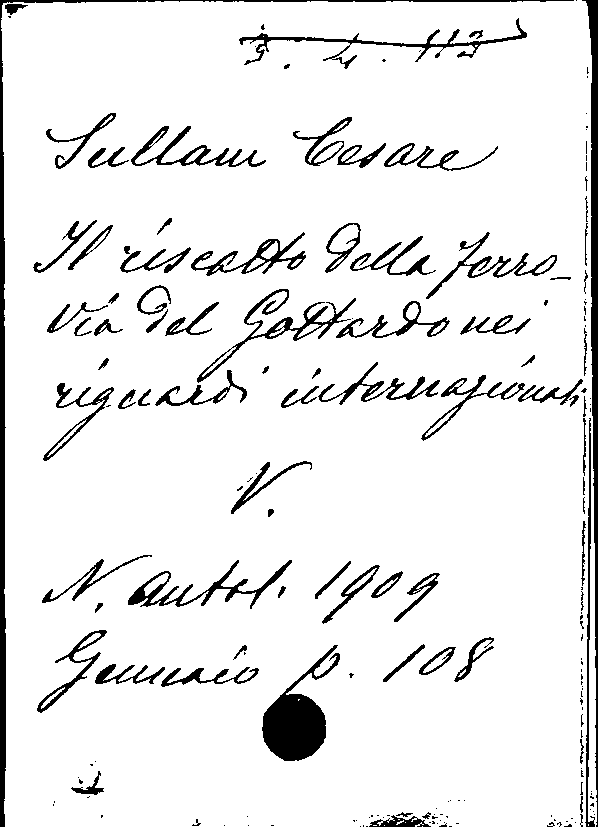 3. 4. 113
Sullam Cesare
Il riscatto della ferro-
via del Gottardo nei
riguardi internazionali
V.
N. antol. 1909
Gennaio p. 108